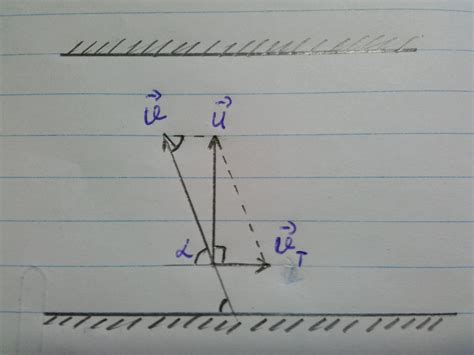 v⃗ u⃗
α v⃗_T